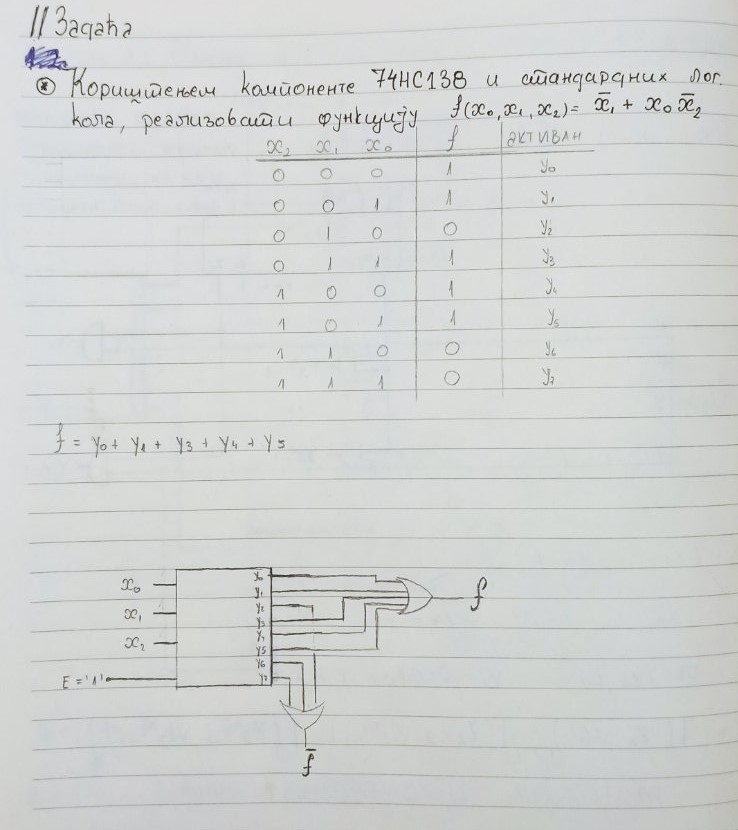 11 Задаћа
* Кориштењем компоненте 74HC138 и стандардних лог.
кола, реализовати функцију f(x₀, x₁, x₂) = x̄₁ + x₀ x̄₂
x₂ x₁ x₀ f АКТИВАН
0 0 0 1 y₀
0 0 1 1 y₁
0 1 0 0 y₂
0 1 1 1 y₃
1 0 0 1 y₄
1 0 1 1 y₅
1 1 0 0 y₆
1 1 1 0 y₇
f = y₀ + y₁ + y₃ + y₄ + y₅
x₀
x₁
x₂
E = '1'
y₀
y₁
y₂
y₃
y₄
y₅
y₆
y₇
f
f̄